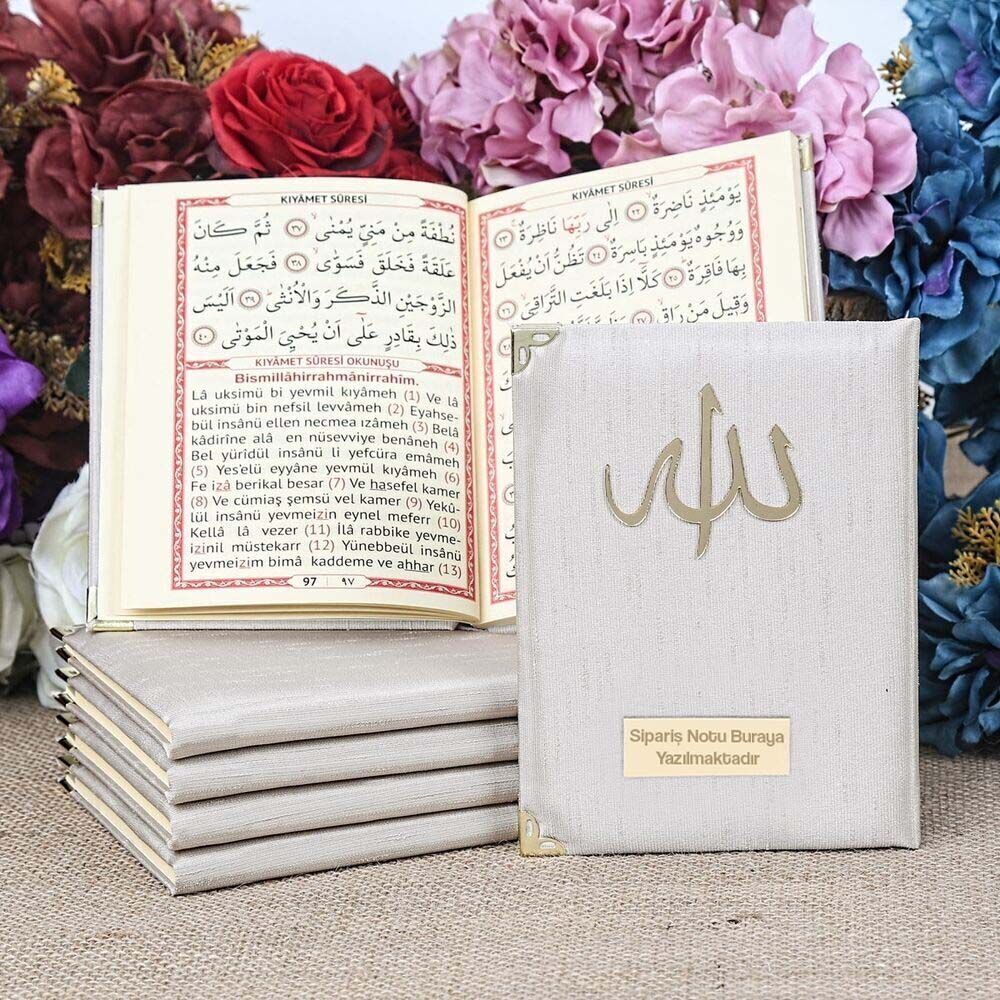 KIYÂMET SÛRESİ
نُطْفَةً مِنْ مَنِيٍّ يُمْنٰىۙ ﴿٣٧﴾ ثُمَّ كَانَ
عَلَقَةً فَخَلَقَ فَسَوّٰىۙ ﴿٣٨﴾ فَجَعَلَ مِنْهُ
الزَّوْجَيْنِ الذَّكَرَ وَالْاُنْثٰىۜ ﴿٣٩﴾ اَلَيْسَ
ذٰلِكَ بِقَادِرٍ عَلٰٓى اَنْ يُحْيِيَ الْمَوْتٰى ﴿٤٠﴾
KIYÂMET SÛRESİ OKUNUŞU
Bismillâhirrahmânirrahîm.
Lâ uksimü bi yevmil kıyâmeh (1) Ve lâ
uksimü bin nefsil levvâmeh (2) Eyahse-
bül insânü ellen necmea ızâmeh (3) Belâ
kâdirîne alâ en nüsevviye benâneh (4)
Bel yürîdül insânü li yefcüra emâmeh
(5) Yes'elü eyyâne yevmül kıyâmeh (6)
Fe izâ berikal besar (7) Ve hasefel kamer
(8) Ve cümiaş şemsü vel kamer (9) Yekû-
lül insânü yevmeizin eynel meferr (10)
Kellâ lâ vezer (11) İlâ rabbike yevme-
izinil müstekarr (12) Yünebbeül insânü
yevmeizim bimâ kaddeme ve ahhar (13)
97 ٩٧
KIYÂMET SÛRESİ
يَوْمَئِذٍ نَاضِرَةٌۙ ﴿٢٢﴾ اِلٰى رَبِّهَا نَاظِرَةٌۚ ﴿٢٣﴾
وَوُجُوهٌ يَوْمَئِذٍ بَاسِرَةٌۙ ﴿٢٤﴾ تَظُنُّ اَنْ يُفْعَلَ
بِهَا فَاقِرَةٌۜ ﴿٢٥﴾ كَلَّٓا اِذَا بَلَغَتِ التَّرَاقِيَۙ ﴿٢٦﴾
وَقِيلَ مَنْ رَاقٍۙ ﴿٢٧﴾
الله
Sipariş Notu Buraya
Yazılmaktadır